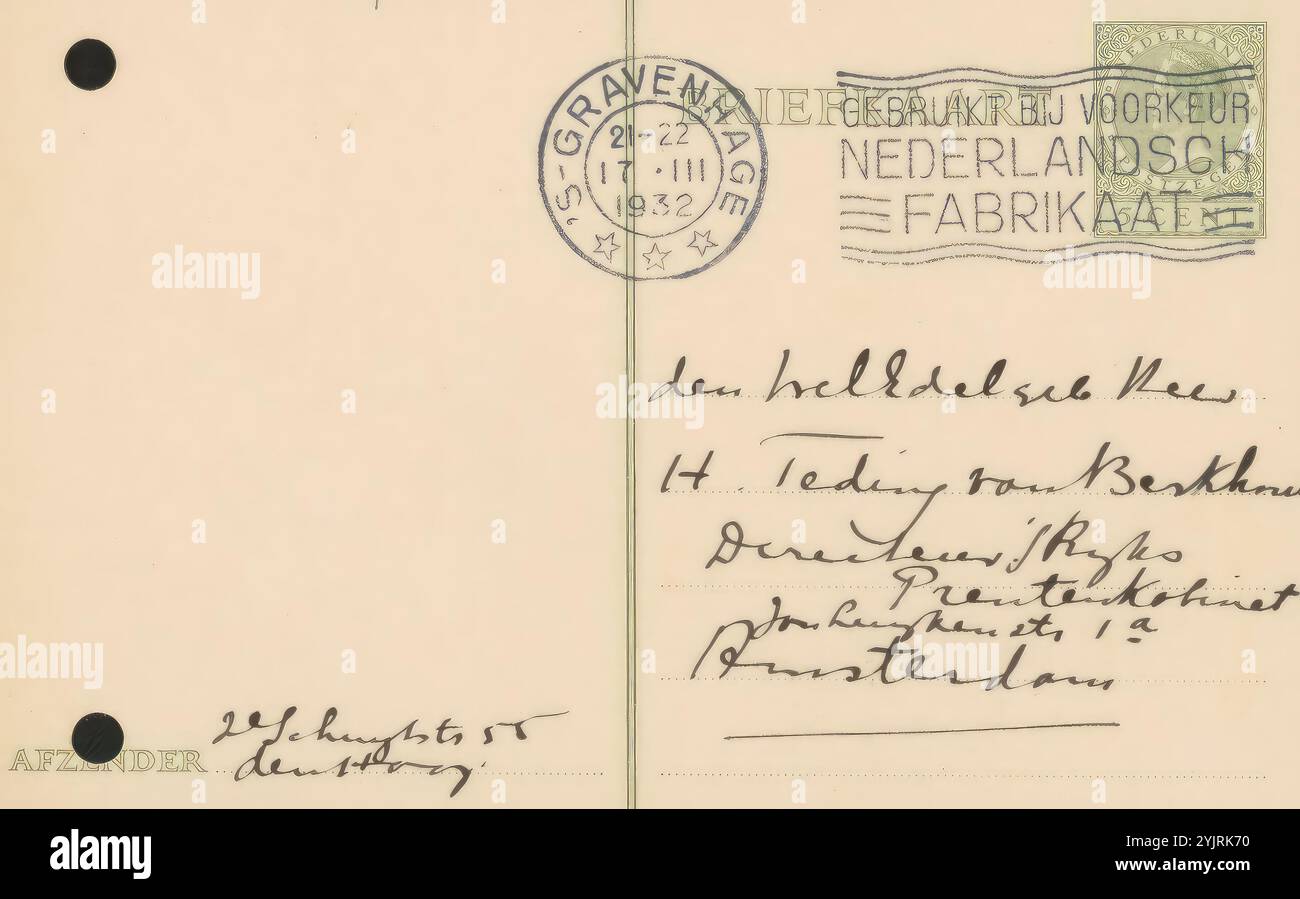 'S-GRAVENHAGE
21-22
17 · III
1932
BRIEFKAART
GEBRUIKT BIJ VOORKEUR
NEDERLANDSCH
FABRIKAAT
NEDERLAND
POSTZEGEL
5 CENT
den WelEdelgeb Heer
H. Teding van Berkhou
Directeur 's Ryks
Prentenkabinet
Jan Luykenstr 1a
Amsterdam
AFZENDER
2e Schuytstr 55
den Haag
alamy
Image ID: 2YJRK70
www.alamy.com